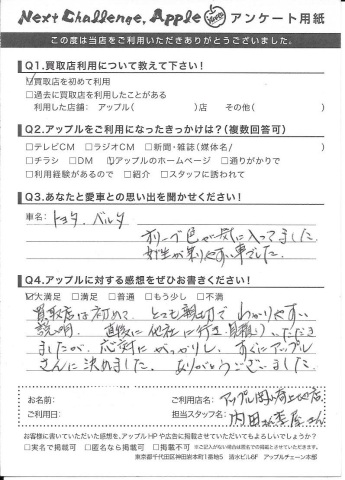 Next Challenge, Apple アンケート用紙
この度は当店をご利用いただきありがとうございました。
Q1.買取店利用について教えて下さい!
☑買取店を初めて利用
□過去に買取店を利用したことがある
利用した店舗: アップル( )店 その他( )
Q2.アップルをご利用になったきっかけは?(複数回答可)
□テレビCM □ラジオCM □新聞・雑誌(媒体名/ )
□チラシ □DM ☑アップルのホームページ □通りがかりで
□利用経験があるので □紹介 □スタッフに誘われて
Q3.あなたと愛車との思い出を聞かせください!
車名: トヨタ ベルタ
オリーブ色が一気に入ってました。
乗りやすい車でした。
Q4.アップルに対する感想をぜひお書きください!
☑大満足 □満足 □普通 □もう少し □不満
買取店は初めて、とても親切でわかりやすい
説明。直後に他社に行き(見積り)いただき
ましたが、応対にがっかりし、すぐにアップル
さんに決めました。ありがとうございました。
お名前: ご利用店名: アップル岡山
ご利用日: 担当スタッフ名: 内田さん さん
お客様に書いていただいた感想を、アップルHPや広告に掲載させていただいてもよろしいでしょうか?
□実名で掲載可 □匿名なら掲載可 □掲載不可 ※ご記入がない場合は匿名での掲載とさせていただきます。
東京都千代田区神田岩本町1番地5 清水ビル6F アップルチェーン本部